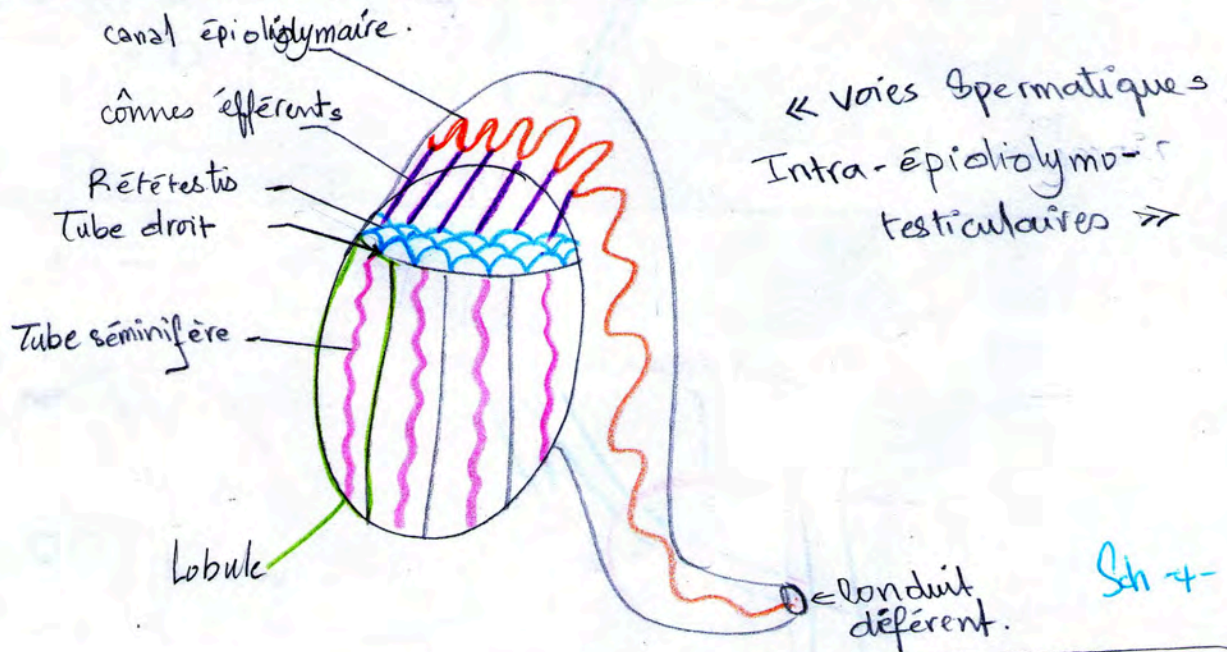 canal épididymaire.
cônnes éfférents
Rététestis
Tube droit
Tube séminifère
Lobule
« voies Spermatiques
Intra-épididymo-
testiculaires »
Conduit
déférent.
Sch -4-